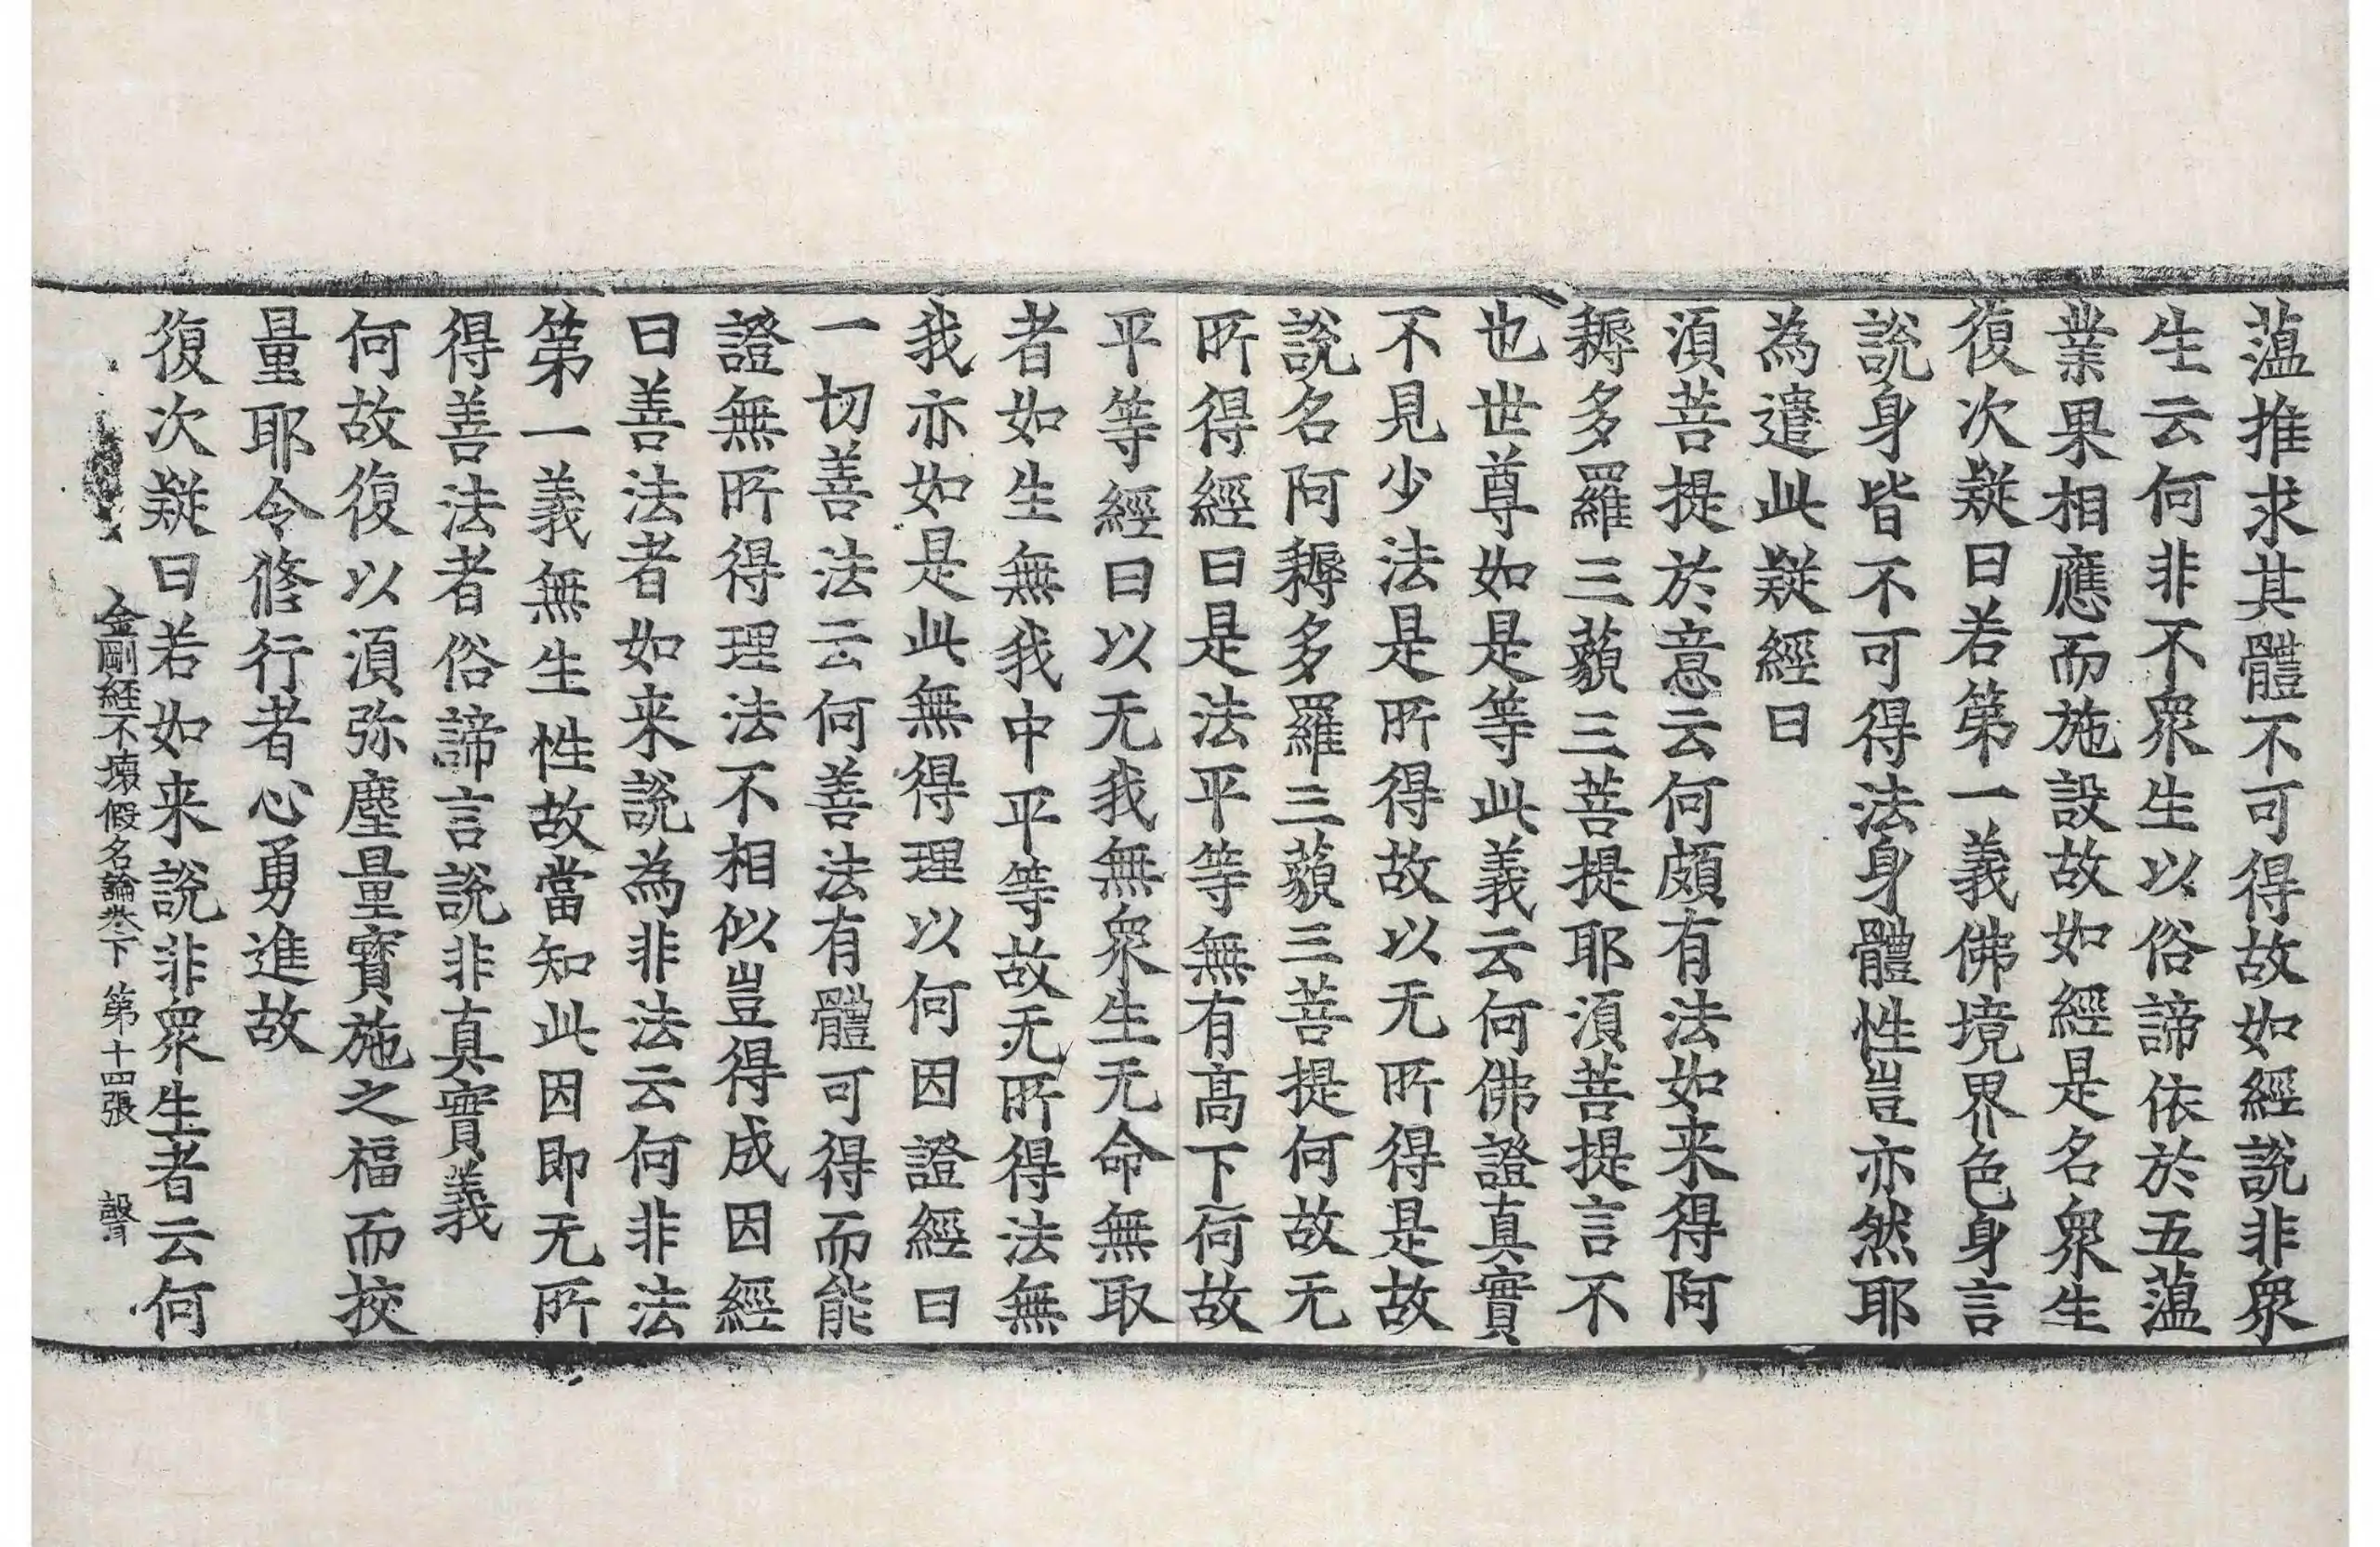 薀推求其體不可得故如經說非衆
生云何非不衆生以俗諦依於五薀
業果相應而施設故如經是名衆生
復次疑曰若第一義佛境界色身言
說身皆不可得法身體性豈亦然耶
為遣此疑經曰
湏菩提於意云何頗有法如来得阿
耨多羅三藐三菩提耶湏菩提言不
也世尊如是等此義云何佛證真實
不見少法是所得故以无所得是故
說名阿耨多羅三藐三菩提何故无
所得經曰是法平等無有高下何故
平等經曰以无我無衆生无命無取
者如生無我中平等故无所得法無
我亦如是此無得理以何因證經曰
一切善法云何善法有體可得而能
證無所得理法不相似豈得成因經
曰善法者如来說為非法云何非法
第一義無生性故當知此因即无所
得善法者俗諦言說非真實義
何故復以湏弥塵量寶施之福而挍
量耶令修行者心勇進故
復次疑曰若如来說非衆生者云何
金剛經不壞假名論卷下 第十四張 聲